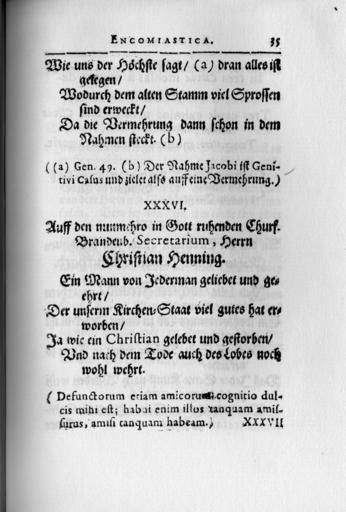 ENCOMIASTICA. 35
Wie uns der Höchste sagt/ (a) dran alles ist
gelegen/
Wodurch dem alten Stamm viel Sprossen
sind erweckt/
Da die Vermehrung dann schon in dem
Nahmen steckt. (b)
( (a) Gen. 49. (b) Der Nahme Jacobi ist Geni-
tivi Casus und zielet also auff eine Vermehrung.)
XXXVI.
Auff den nunmehro in Gott ruhenden Churf.
Brandenb. Secretarium, Herrn
Christian Henning.
Ein Mann von Jederman geliebet und ge-
ehrt/
Der unserm Kirchen-Staat viel gutes hat er-
worben/
Ja wie ein Christian gelebet und gestorben/
Und nach dem Tode auch des Lobes noch
wohl wehrt.
( Defunctorum etiam amicorum cognitio dul-
cis mihi est; habui enim illos tanquam amis-
surus, amisi tanquam habeam.) XXXVII